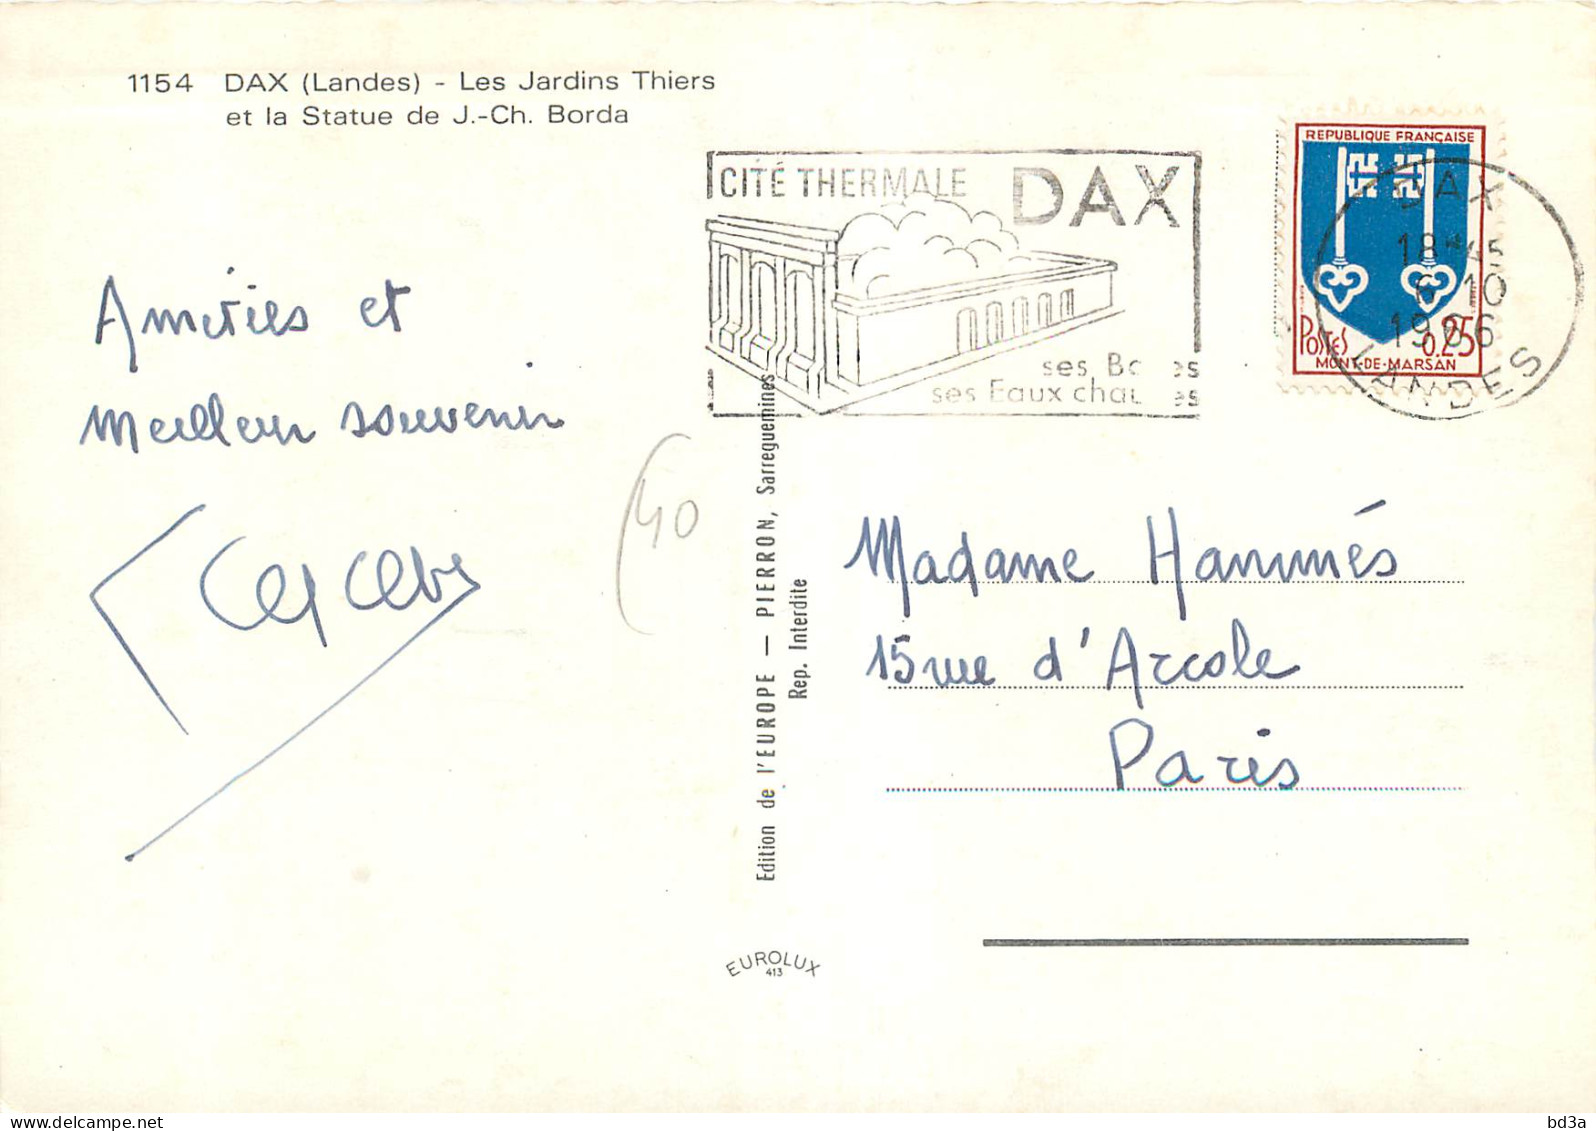 1154 DAX (Landes) - Les Jardins Thiers
et la Statue de J.-Ch. Borda
CITÉ THERMALE DAX
ses
ses Eaux
REPUBLIQUE FRANÇAISE
POSTES 0.25
MONT-DE-MARSAN
DAX
18H45
6-10
1966
LANDES
Amitiés et
Meilleur souvenir
40
Edition de l'EUROPE — PIERRON, Sarreguemines
Rep. Interdite
Madame Hammés
15 rue d'Arcole
Paris
EUROLUX
413
bd3a